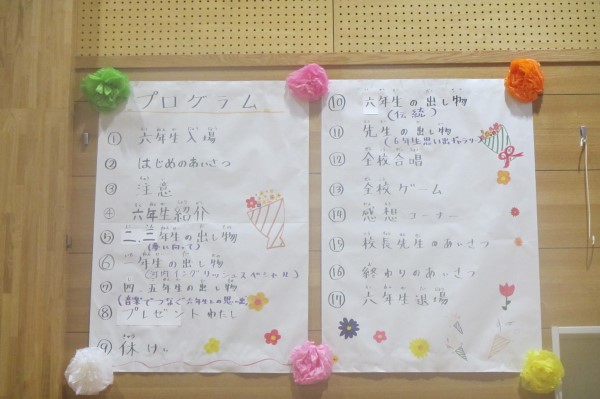 プログラム
① 六年生入場
② はじめのあいさつ
③ 注意
④ 六年生紹介
⑤ 二年生の出し物
⑥ 年生の出し物
⑦ 四、五年生の出し物
(音楽でつなぐ六年生との思い出)
⑧ プレゼントわたし
⑨ 休けい
⑩ 六年生の出し物
(伝統)
⑪ 先生の出し物
(6年生思い出ギャラリー)
⑫ 全校合唱
⑬ 全校ゲーム
⑭ 感想コーナー
⑮ 校長先生のあいさつ
⑯ 終わりのあいさつ
⑰ 六年生退場